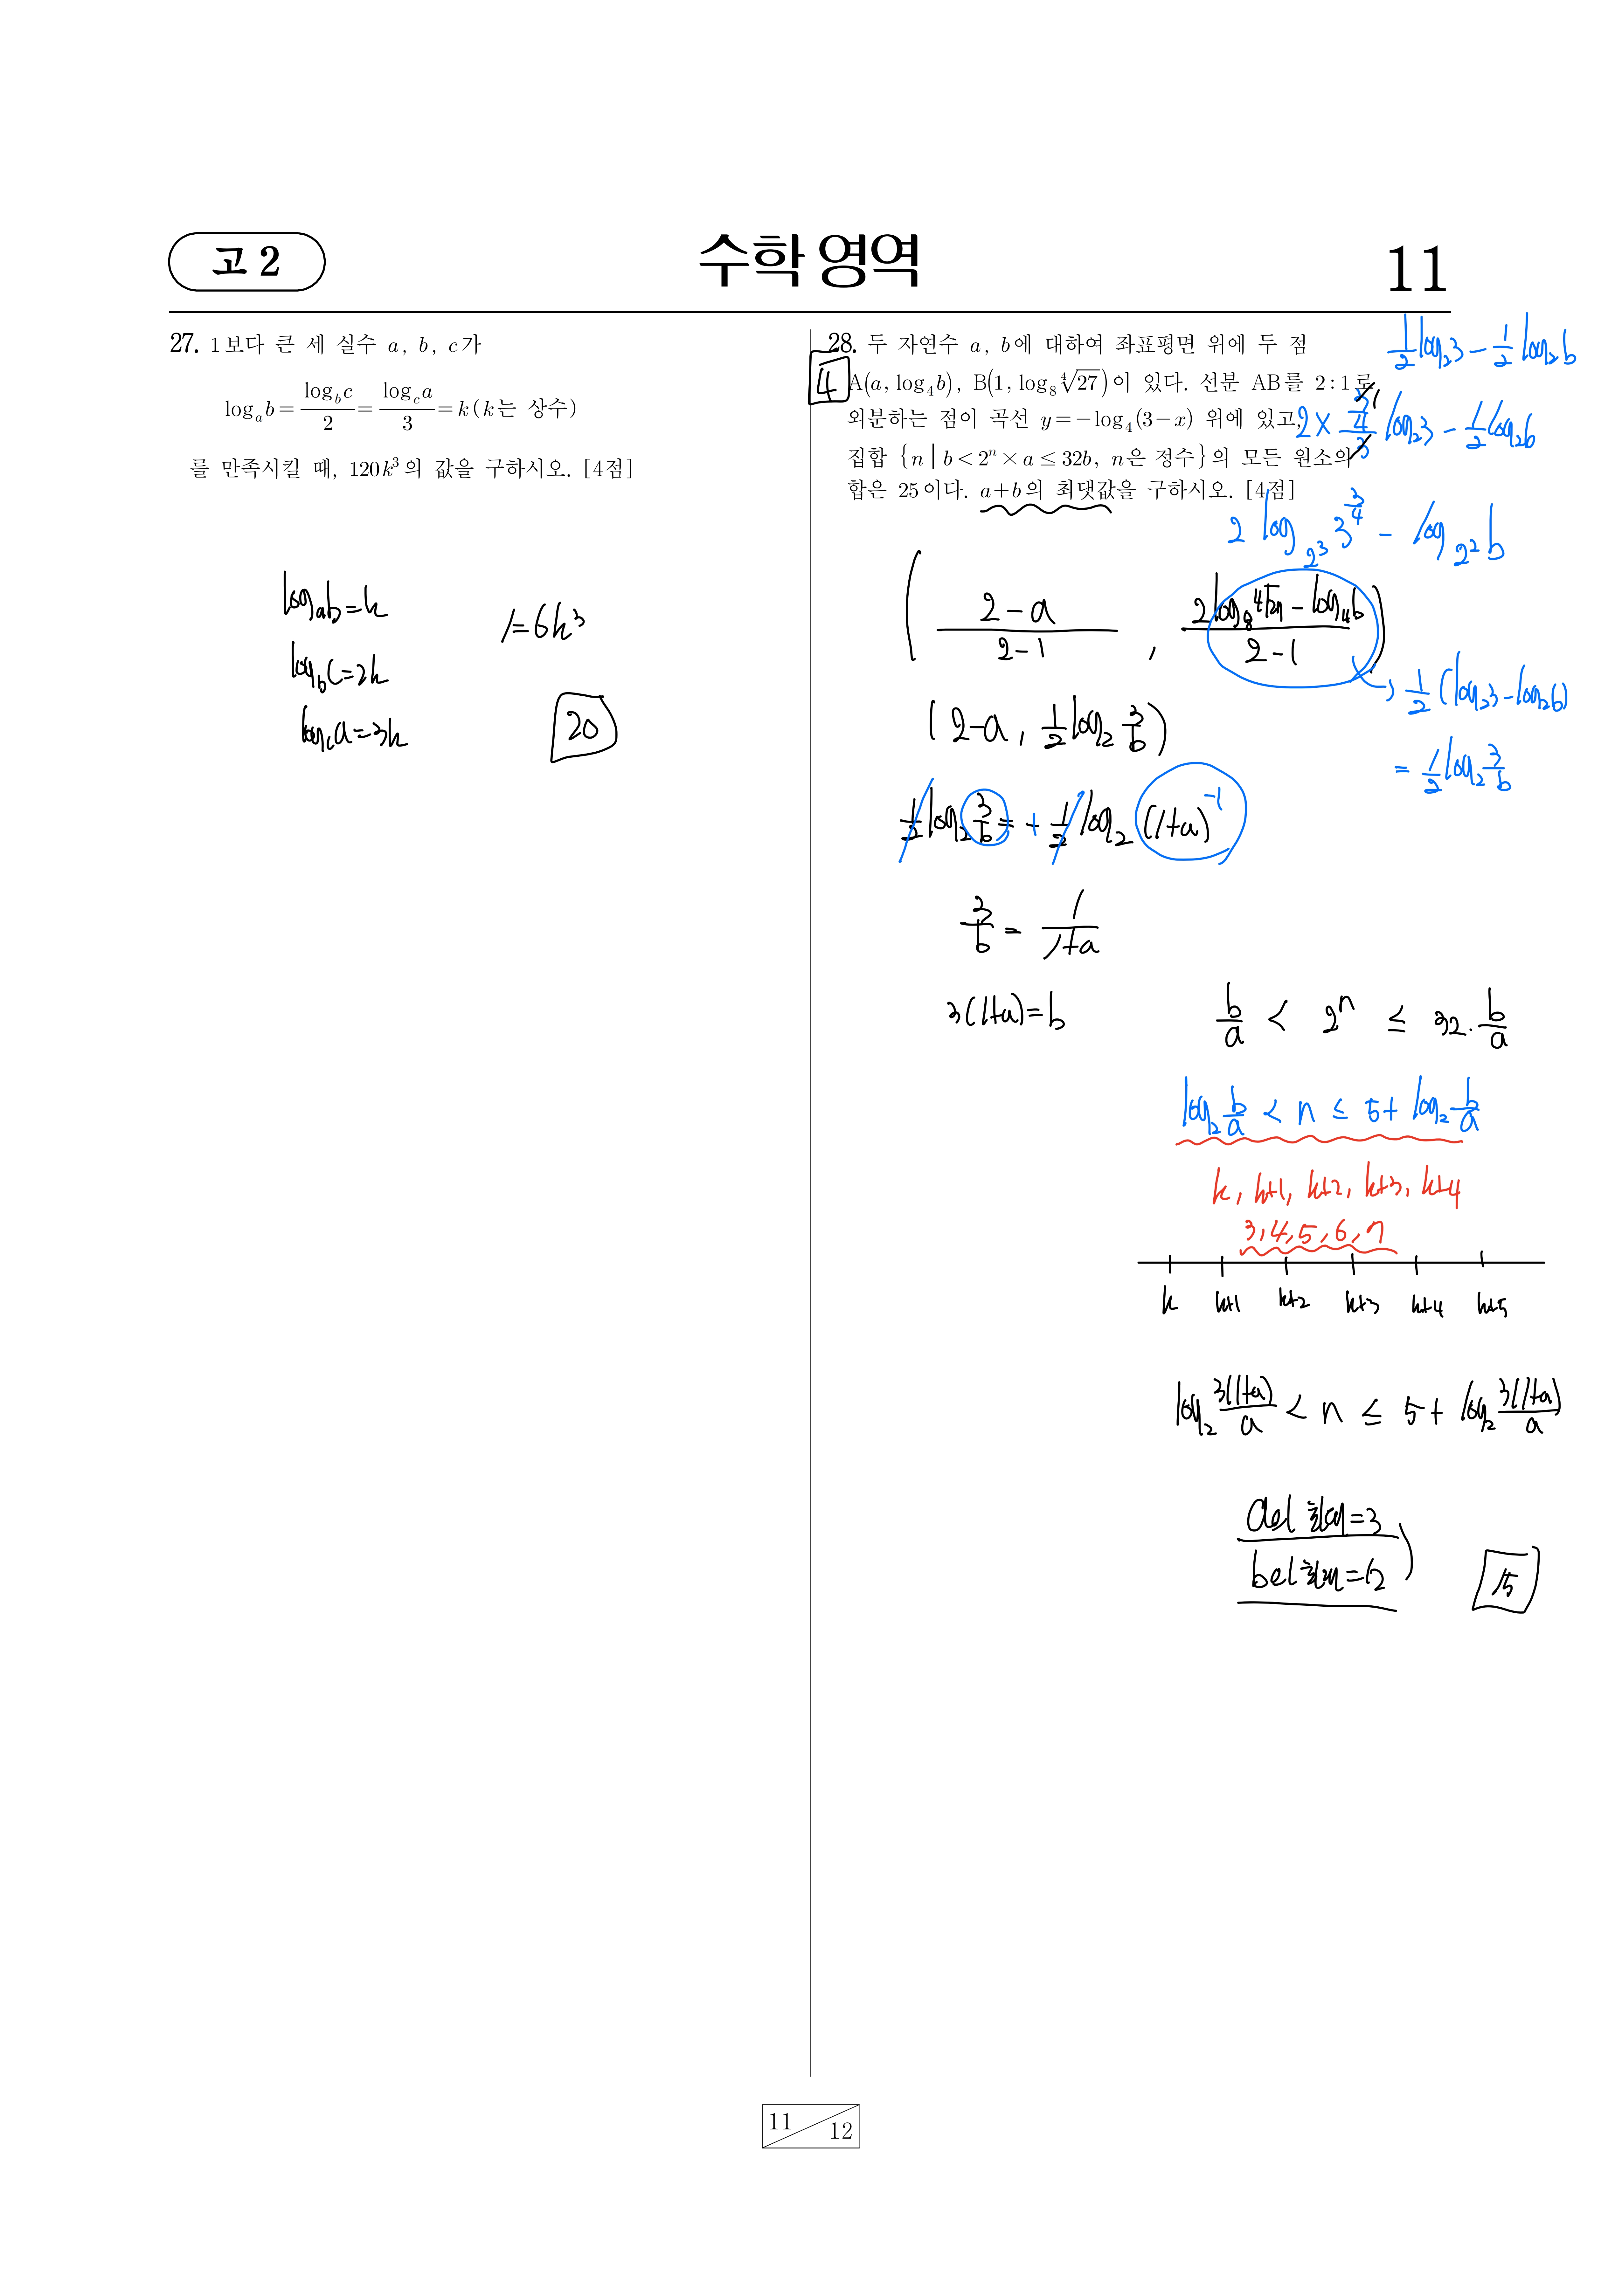 고 2
수학 영역
11
27. 1보다 큰 세 실수 a, b, c가
log_a b = (log_b c)/2 = (log_c a)/3 = k (k는 상수)
를 만족시킬 때, 120k³의 값을 구하시오. [4점]
log_a b = k
log_b c = 2k
log_c a = 3k
1 = 6k³
20
28. 두 자연수 a, b에 대하여 좌표평면 위에 두 점
A(a, log₄b), B(1, log₈ ⁴√27)이 있다. 선분 AB를 2 : 1로
외분하는 점이 곡선 y = −log₄(3−x) 위에 있고,
집합 {n | b < 2ⁿ × a ≤ 32b, n은 정수}의 모든 원소의
합은 25이다. a+b의 최댓값을 구하시오. [4점]
4
1/2 log₂3 − 1/2 log₂b
2 × (3/4)/3 log₂3 − 1/2 log₂b
1
2 log_{2³} 3^{3/4} − log_{2²} b
( (2−a)/(2−1) , (2log₈ ⁴√27 − log₄b)/(2−1) )
→ 1/2 (log₂3 − log₂b)
= 1/2 log₂ 3/b
( 2−a, 1/2 log₂ 3/b )
1/2 log₂ 3/b = + 1/2 log₂ (1+a)⁻¹
3/b = 1/(1+a)
3(1+a) = b
b/a < 2ⁿ ≤ 32 · b/a
log₂ b/a < n ≤ 5 + log₂ b/a
k, k+1, k+2, k+3, k+4
3, 4, 5, 6, 7
k k+1 k+2 k+3 k+4 k+5
log₂ 3(1+a)/a < n ≤ 5 + log₂ 3(1+a)/a
a의 최대 = 3
b의 최대 = 12
15
11
12